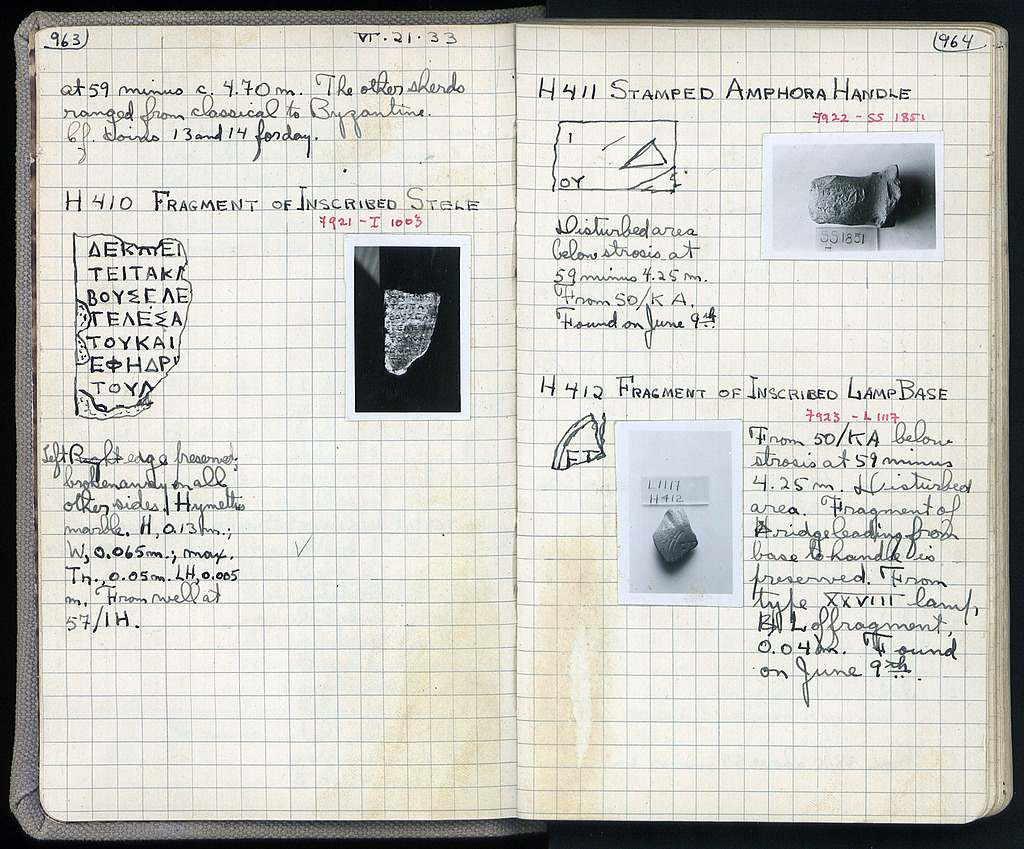 963
VI·21·33
at 59 minus c. 4.70 m. The other sherds
ranged from classical to Byzantine.
Cf. coins 13 and 14 for day.
H 410 FRAGMENT OF INSCRIBED STELE
7921 - I 1003
ΔΕΚ ΕΙ
ΤΕΙΤΑΚΛ
ΒΟΥΣΕΛΕ
ΤΕΛΕΣΑ
ΤΟΥΚΑΙ
ΕΦΗΔΡΙ
ΤΟΥΛ
Left Right edge preserved;
broken away on all
other sides. Hymettis
marble. H, 0.131m.;
W, 0.065m.; max.
Th., 0.05m. LH, 0.005
m. From well at
57/ΙΗ.
964
H 411 STAMPED AMPHORA HANDLE
7922 - SS 1851
Ι
ΟΥ Σ
SS 1851
Disturbed area
below strosis at
59 minus 4.25 m.
From 50/ΚΑ.
Found on June 9th.
H 412 FRAGMENT OF INSCRIBED LAMP BASE
7923 - L 1117
L1117
H412
From 50/ΚΑ below
strosis at 59 minus
4.25 m. Disturbed
area. Fragment of
ridge leading from
base to handle is
preserved. From
type XXVIII lamp,
L of fragment,
0.04m. Found
on June 9th.